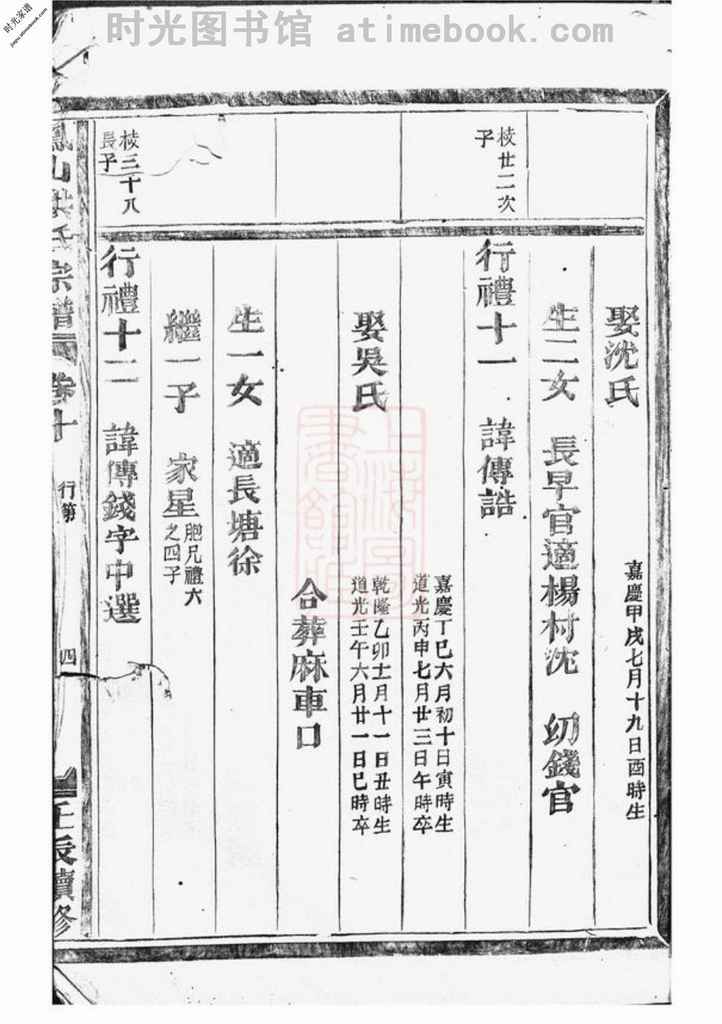 时光图书馆 atimebook.com
时光家谱
jiapu.atimebook.com
娶沈氏
嘉慶甲戌七月十九日酉時生
生二女 長早官適楊村沈 幼錢官
棱廿二次
子
行禮十一 諱傳誥
嘉慶丁巳六月初十日寅時生
道光丙申七月廿三日午時卒
娶吳氏
乾隆乙卯十一月十一日丑時生
道光壬午六月廿一日巳時卒
合葬麻車口
生一女 適長塘徐
繼一子 家星
胞兄禮六
之四子
棱三十八
長子
行禮十二 諱傳錢字中選
鳳山洪氏宗譜 卷十 行第 四 壬辰續修
上海圖書館藏